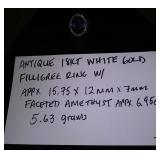 ANTIQUE 18KT WHITE GOLD
FILLIGREE RING W/
APPX 15.75 X 12MM X 7MM
FACETED AMETHYST APPX 6.95c
5.63 grams